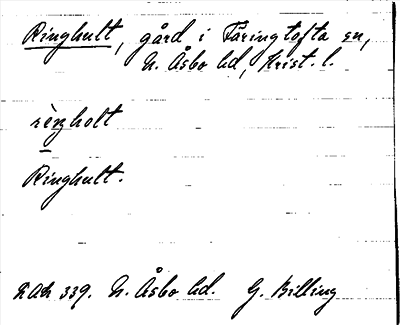 Ringhult, gård i Färingtofta sn,
N. Åsbo hd, Krist. l.
rèŋholt
Ringhult.
RAÄ 339. N. Åsbo hd. G. Billing